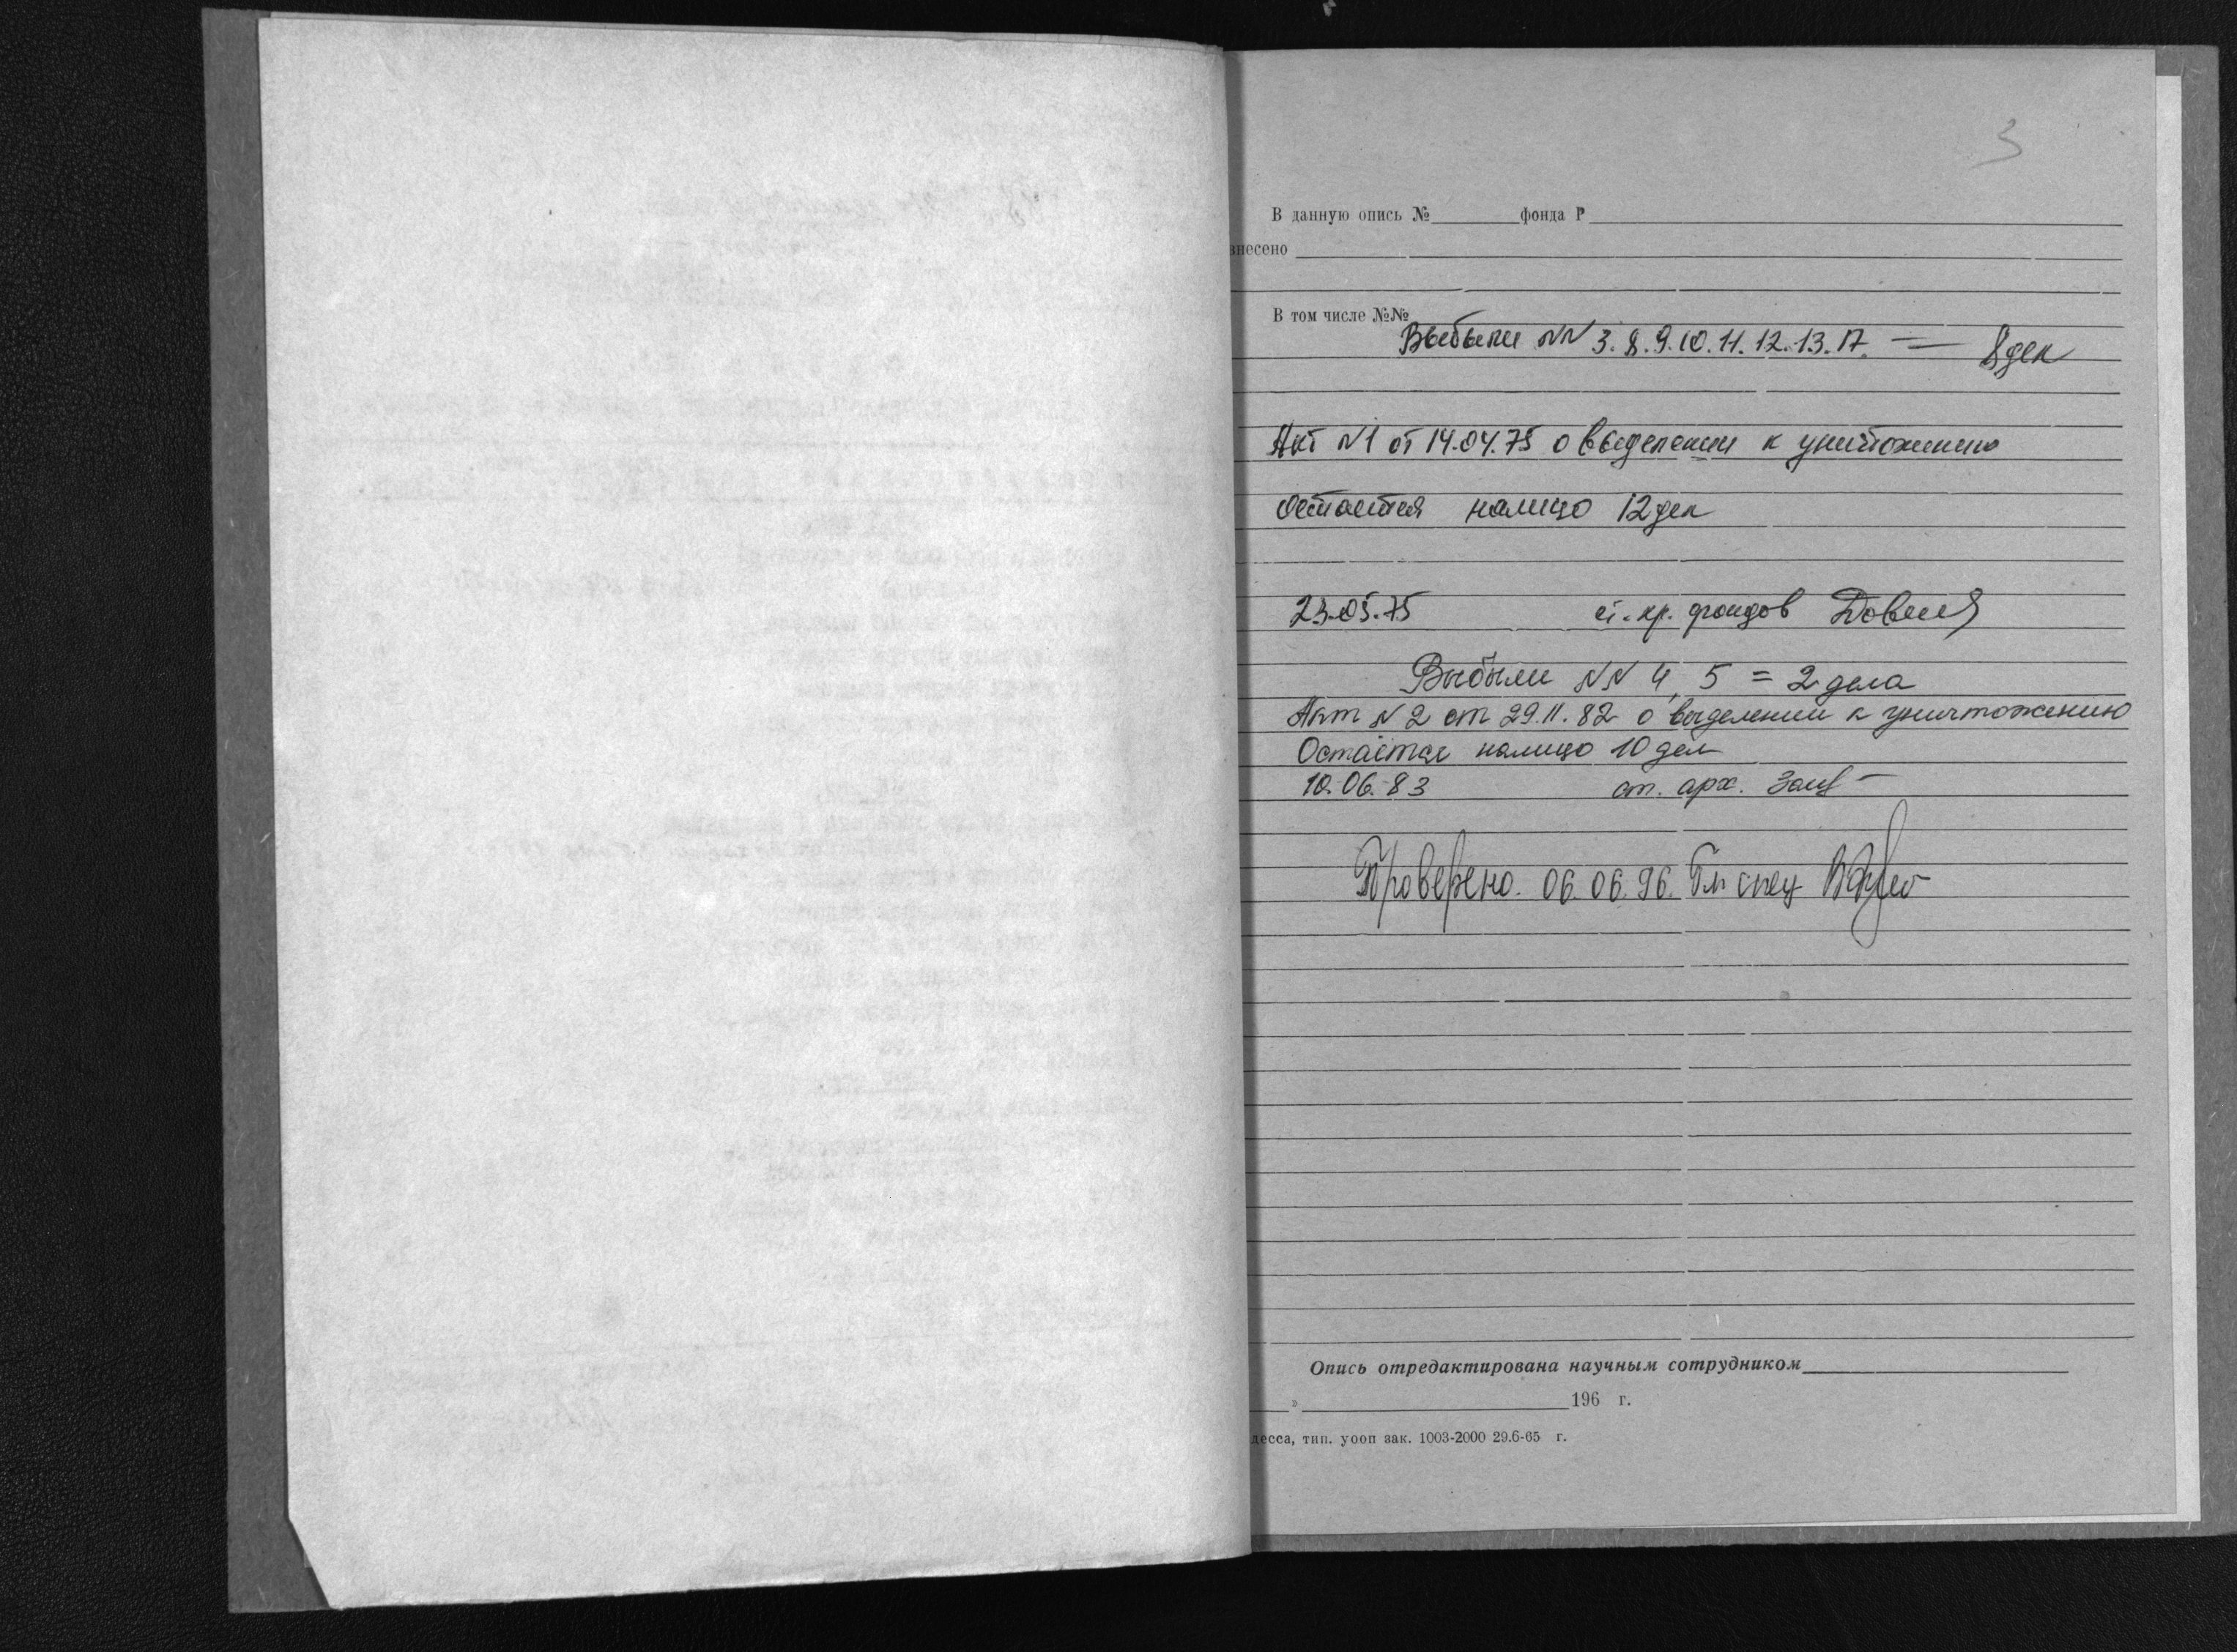 3
В данную опись № фонда Р
внесено
В том числе №№
Выбыли NN 3. 8. 9. 10. 11. 12. 13. 17. — 8 дел
Акт N1 от 14.04.75 о выделении к уничтожению
остается налицо 12 дел
23.05.75 хр. фондов
Выбыли NN 4, 5 = 2 дела
Акт N 2 от 29.11.82 о выделении к уничтожению
Остаётся налицо 10 дел
10.06.83 ст. арх.
Проверено. 06.06.96. Гл спец
Опись отредактирована научным сотрудником
» 196 г.
десса, тип. уооп зак. 1003-2000 29.6-65 г.